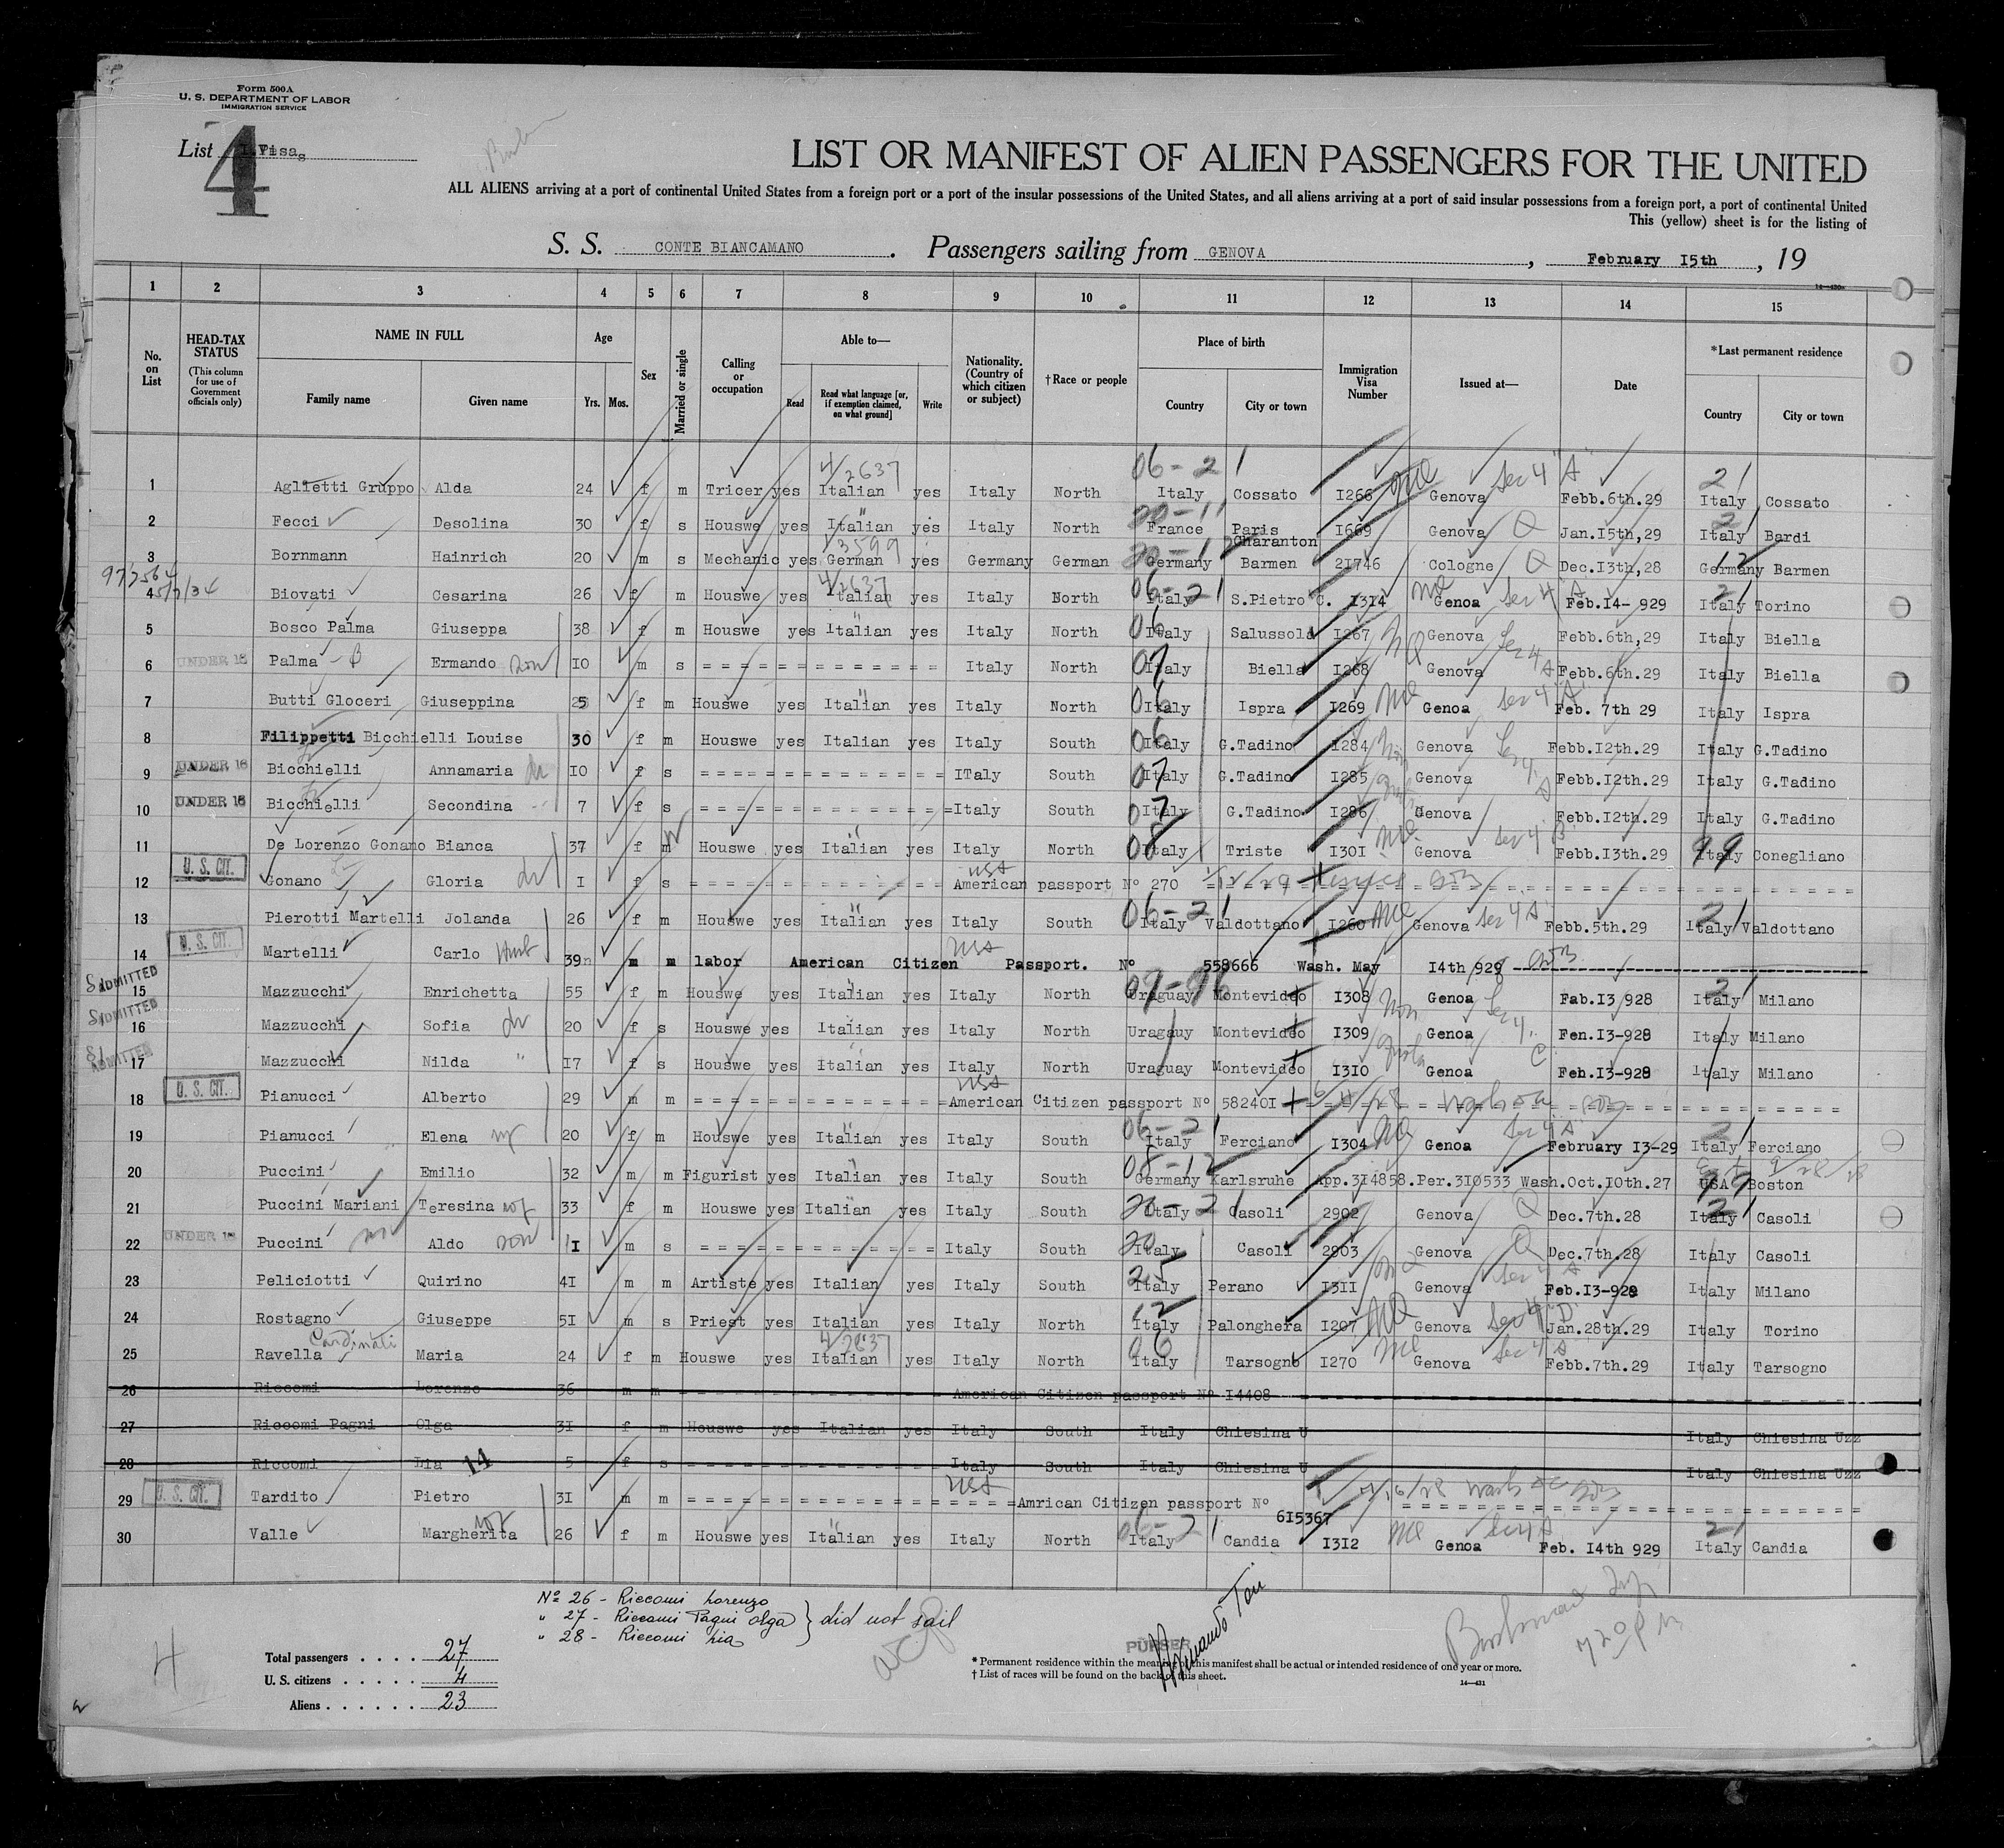 Form 500A
U. S. DEPARTMENT OF LABOR
IMMIGRATION SERVICE
List 4
LIST OR MANIFEST OF ALIEN PASSENGERS FOR THE UNITED
ALL ALIENS arriving at a port of continental United States from a foreign port or a port of the insular possessions of the United States, and all aliens arriving at a port of said insular possessions from a foreign port, a port of continental United
This (yellow) sheet is for the listing of
S. S. CONTE BIANCAMANO. Passengers sailing from GENOVA, February I5th, 19
1 2 3 4 5 6 7 8 9 10 11 12 13 14 15
No. on List
HEAD-TAX STATUS (This column for use of Government officials only)
NAME IN FULL Family name Given name
Age Yrs. Mos.
Sex
Married or single
Calling or occupation
Able to— Read Read what language [or, if exemption claimed, on what ground] Write
Nationality. (Country of which citizen or subject)
†Race or people
Place of birth Country City or town
Immigration Visa Number
Issued at—
Date
*Last permanent residence Country City or town
1 Aglietti Gruppo Alda 24 f m Tricer yes Italian yes Italy North Italy Cossato I266 Genova Febb.6th.29 Italy Cossato
2 Fecci Desolina 30 f s Houswe yes Italian yes Italy North France Paris Charanton I669 Genova Jan.I5th,29 Italy Bardi
3 Bornmann Hainrich 20 m s Mechanic yes German yes Germany German Germany Barmen 2I746 Cologne Dec.I3th,28 Germany Barmen
4 Biovati Cesarina 26 f m Houswe yes Italian yes Italy North Italy S.Pietro C. I3I4 Genoa Feb.I4- 929 Italy Torino
5 Bosco Palma Giuseppa 38 f m Houswe yes Italian yes Italy North Italy Salussola I267 Genova Febb.6th,29 Italy Biella
6 UNDER 16 Palma Ermando son I0 m s = = = = = = = = = = = = = Italy North Italy Biella I268 Genova Febb.6th.29 Italy Biella
7 Butti Gloceri Giuseppina 25 f m Houswe yes Italian yes Italy North Italy Ispra I269 Genoa Feb. 7th 29 Italy Ispra
8 Filippetti Bicchielli Louise 30 f m Houswe yes Italian yes Italy South Italy G.Tadino I284 Genova Febb.I2th.29 Italy G.Tadino
9 UNDER 16 Bicchielli Annamaria I0 f s = = = = = = = = = = = = = ITaly South Italy G.Tadino I285 Genova Febb.I2th.29 Italy G.Tadino
10 UNDER 16 Bicchielli Secondina 7 f s = = = = = = = = = = = = = Italy South Italy G.Tadino I286 Genova Febb.I2th.29 Italy G.Tadino
11 De Lorenzo Gonano Bianca 37 f m Houswe yes Italian yes Italy North Italy Triste I30I Genova Febb.I3th.29 Italy Conegliano
12 U. S. CIT. Gonano Gloria I f s = = = = = = = = = = = = = American passport Nº 270
13 Pierotti Martelli Jolanda 26 f m Houswe yes Italian yes Italy South Italy Valdottano I260 Genova Febb.5th.29 Italy Valdottano
14 U. S. CIT. Martelli Carlo 39 m m labor American Citizen Passport. Nº 558666 Wash. May I4th 929
15 ADMITTED Mazzucchi Enrichetta 55 f m Houswe yes Italian yes Italy North Uraguay Montevideo I308 Genoa Fab.I3 928 Italy Milano
16 ADMITTED Mazzucchi Sofia 20 f s Houswe yes Italian yes Italy North Uragauy Montevideo I309 Genoa Fen.I3-928 Italy Milano
17 ADMITTED Mazzucchi Nilda I7 f s Houswe yes Italian yes Italy North Uraguay Montevideo I3I0 Genoa Feh.I3-928 Italy Milano
18 U. S. CIT. Pianucci Alberto 29 m m = = = = = = = = = = = = = American Citizen passport Nº 58240I
19 Pianucci Elena 20 f m Houswe yes Italian yes Italy South Italy Ferciano I304 Genoa February I3-29 Italy Ferciano
20 Puccini Emilio 32 m m Figurist yes Italian yes Italy South Germany Karlsruhe App.3I4858.Per.3I0533 Wash.Oct.I0th.27 USA Boston
21 Puccini Mariani Teresina 33 f m Houswe yes Italian yes Italy South Italy Casoli 2902 Genova Dec.7th.28 Italy Casoli
22 UNDER 16 Puccini Aldo son 1I m s = = = = = = = = = = = = = Italy South Italy Casoli 2903 Genova Dec.7th.28 Italy Casoli
23 Peliciotti Quirino 4I m m Artiste yes Italian yes Italy South Italy Perano I3II Genova Feb.I3-928 Italy Milano
24 Rostagno Giuseppe 5I m s Priest yes Italian yes Italy North Italy Palonghera I207 Genova Jan.28th.29 Italy Torino
25 Ravella Cardinati Maria 24 f m Houswe yes Italian yes Italy North Italy Tarsogno I270 Genova Febb.7th.29 Italy Tarsogno
26 Riccomi Lorenzo 36 m m = = = = = = = = = = = = = American Citizen passport Nº I4408
27 Riccomi Pagni Olga 3I f m Houswe yes Italian yes Italy South Italy Chiesina U Italy Chiesina Uzz
28 Riccomi Lia 14 5 f s = = = = = = = = = = = = = Italy South Italy Chiesina U Italy Chiesina Uzz
29 U. S. CIT. Tardito Pietro 3I m m = = = = = = = = = = = = = Amrican Citizen passport Nº 6I5367
30 Valle Margherita 26 f m Houswe yes Italian yes Italy North Italy Candia I3I2 Genoa Feb. I4th 929 Italy Candia
Nº 26 - Riccomi Lorenzo
" 27 - Riccomi Pagni Olga } did not sail
" 28 - Riccomi Lia
Total passengers . . . . 27
U. S. citizens . . . . . 4
Aliens . . . . . . 23
PURSER
* Permanent residence within the meaning of this manifest shall be actual or intended residence of one year or more.
† List of races will be found on the back of this sheet.
14—431